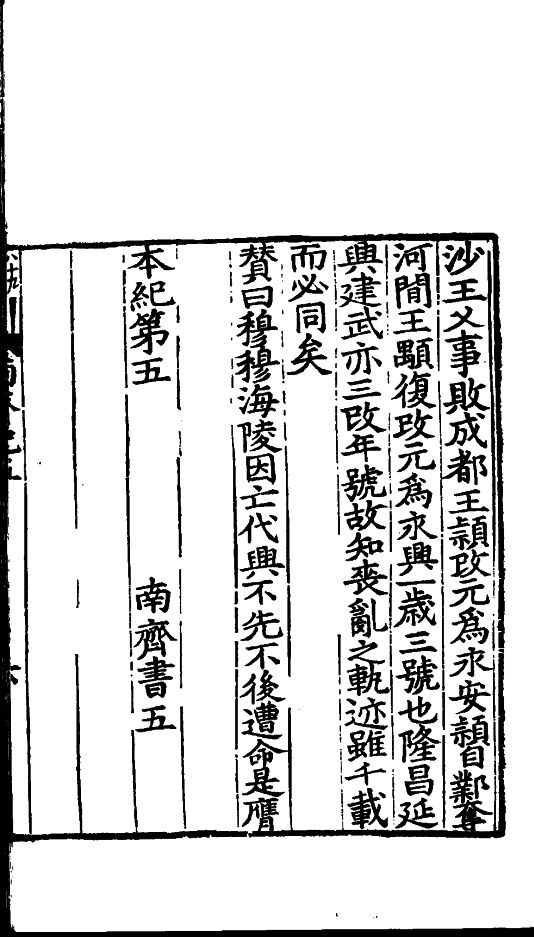 沙王乂事敗成都王穎改元爲永安穎自鄴奪
河間王顒復改元爲永興一歲三號也隆昌延
興建武亦三改年號故知喪亂之軌迹雖千載
而必同矣
贊曰穆穆海陵因亡代興不先不後遭命是膺
本紀第五 南齊書五